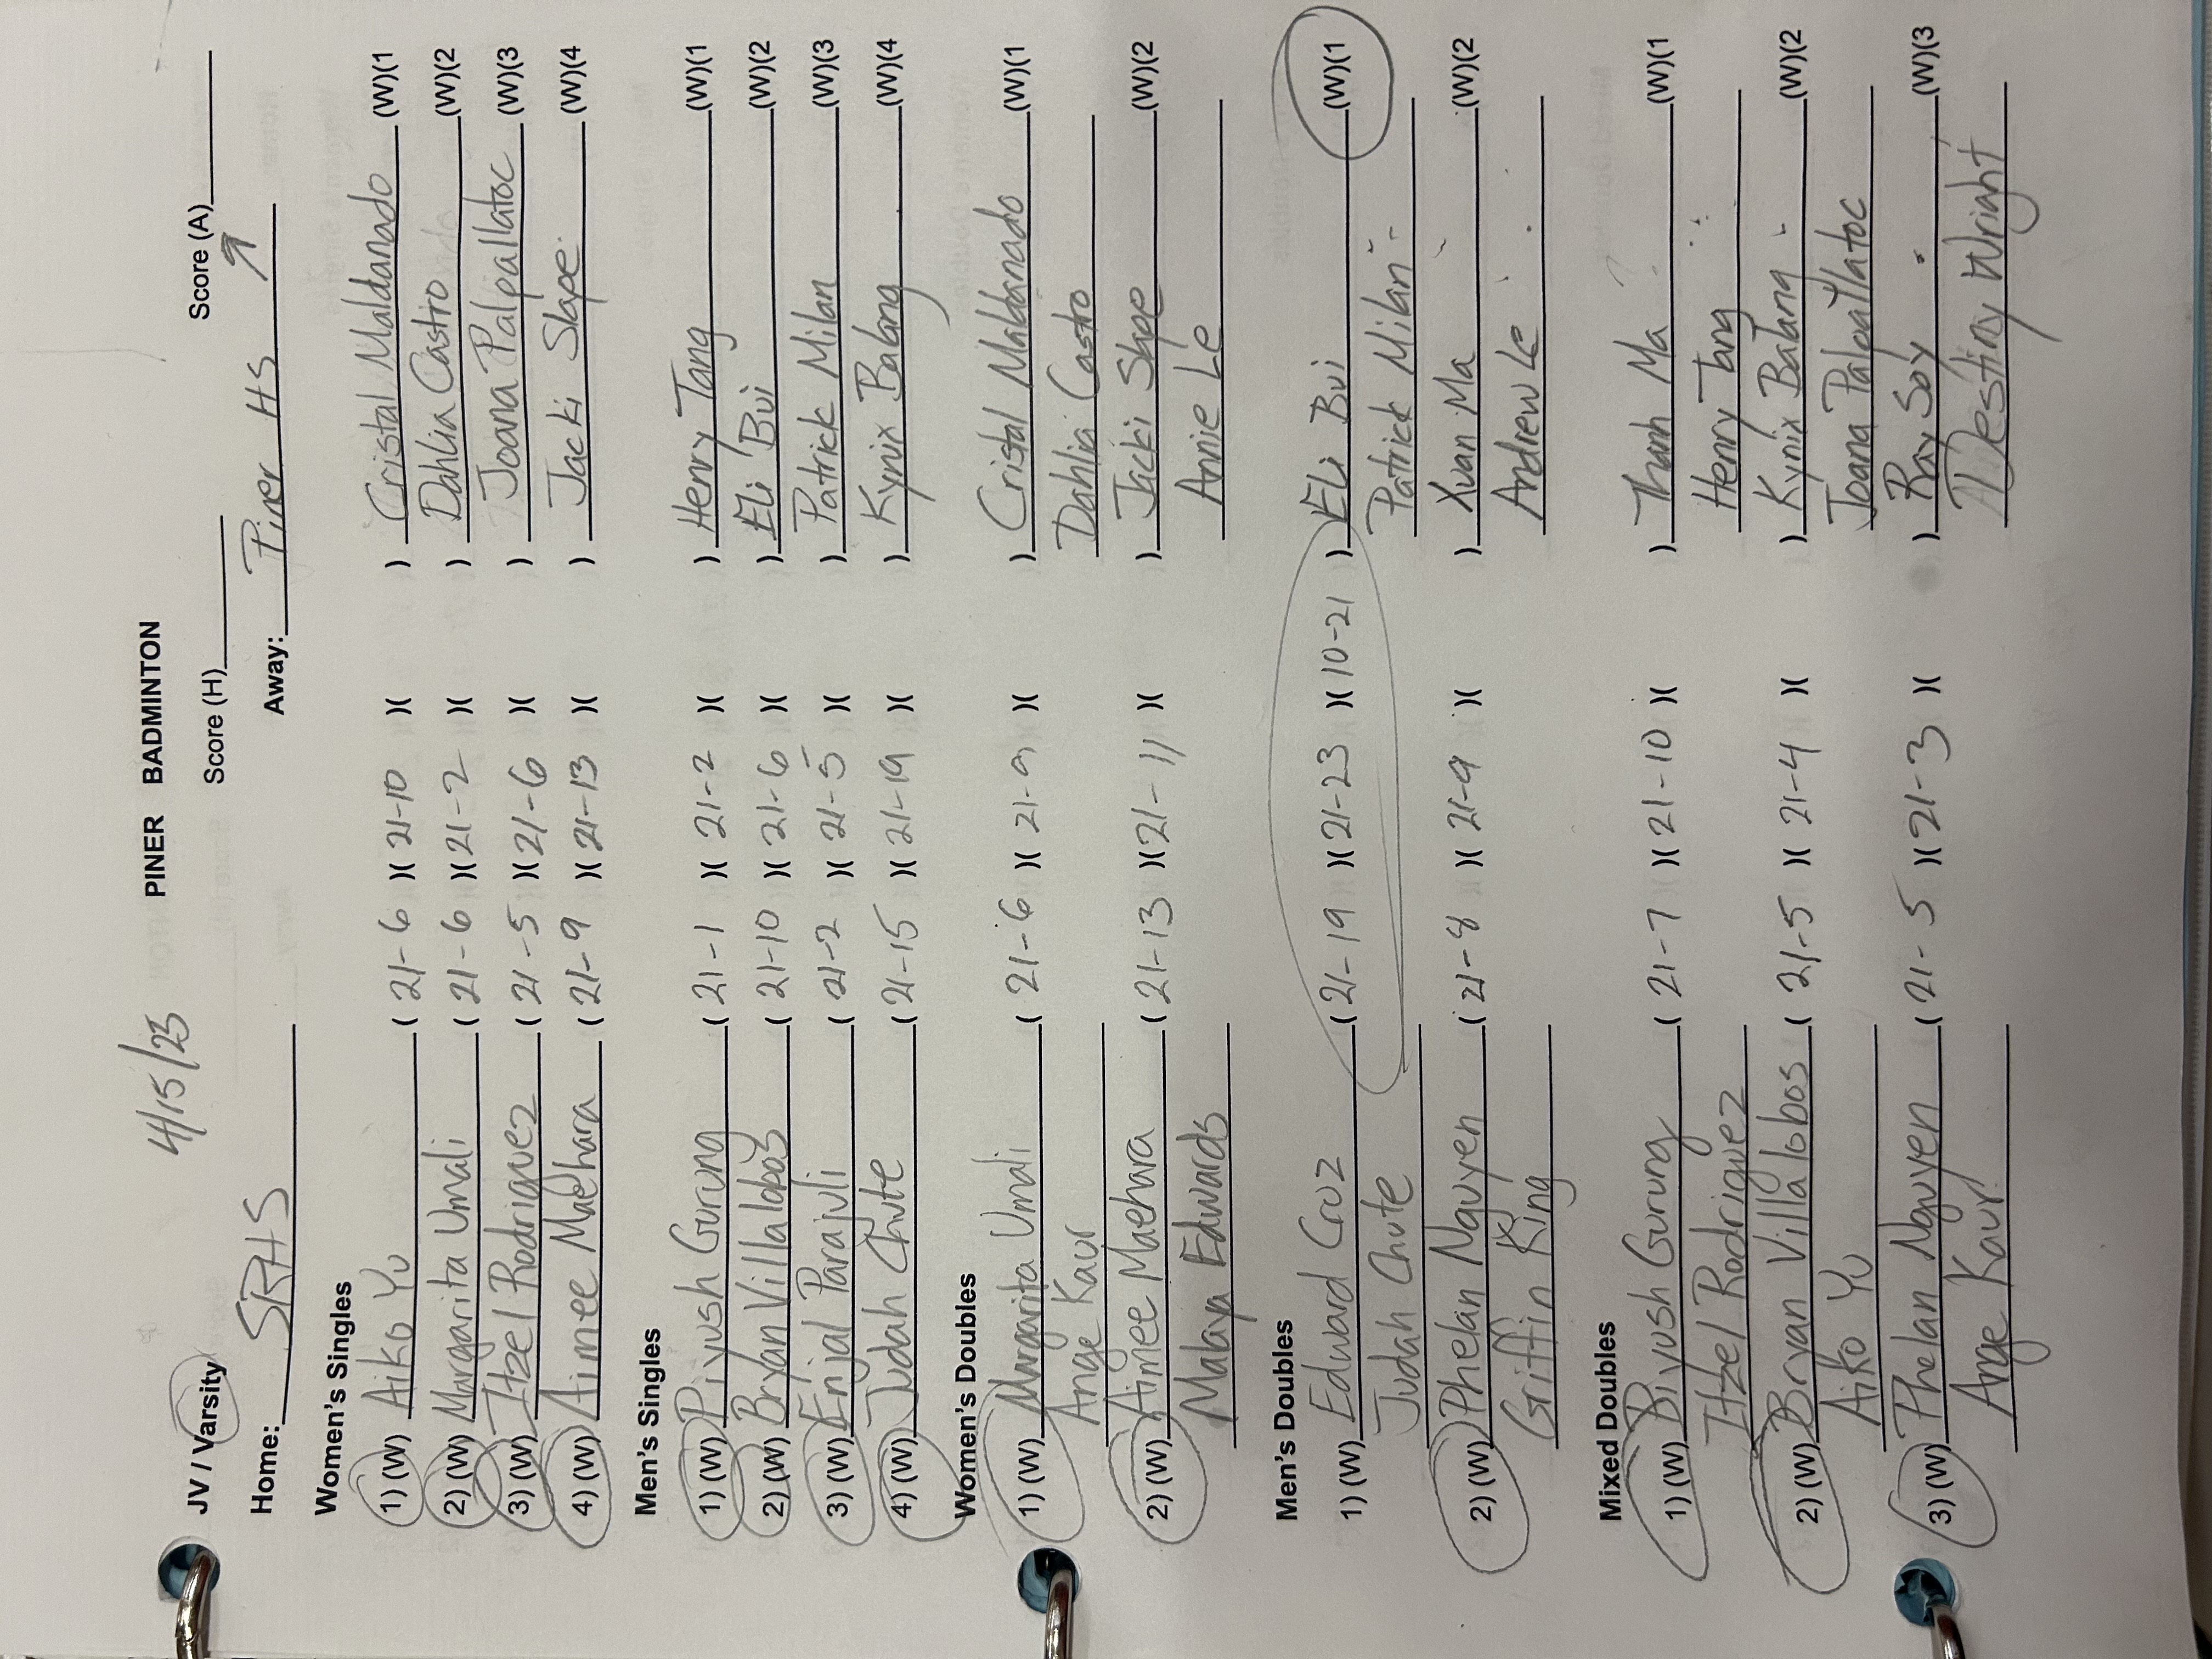 4/15/23
PINER BADMINTON
JV / Varsity Score (H)______ Score (A)______
Home: SRHS Away: Piner HS
Women's Singles
1) (W) Aiko Yu ( 21-6 )( 21-10 )( ) Cristal Maldanado (W)(1
2) (W) Margarita Umali ( 21-6 )( 21-2 )( ) Dahlia Castro (W)(2
3) (W) Itzel Rodriguez ( 21-5 )( 21-6 )( ) Joana Palpallatoc (W)(3
4) (W) Aimee Maehara ( 21-9 )( 21-13 )( ) Jacki Slape (W)(4
Men's Singles
1) (W) Piyush Gurung ( 21-1 )( 21-2 )( ) Henry Tang (W)(1
2) (W) Bryan Villalobos ( 21-10 )( 21-6 )( ) Eli Bui (W)(2
3) (W) Enjal Parajuli ( 21-2 )( 21-5 )( ) Patrick Milan (W)(3
4) (W) Judah Chute ( 21-15 )( 21-19 )( ) Kynix Balang (W)(4
Women's Doubles
1) (W) Margarita Umali ( 21-6 )( 21-9 )( ) Cristal Maldanado (W)(1
Ange Kaur Dahlia Castro
2) (W) Aimee Maehara ( 21-13 )( 21-11 )( ) Jacki Slape (W)(2
Malaya Edwards Annie Le
Men's Doubles
1) (W) Edward Cruz ( 21-19 )( 21-23 )( 10-21 ) Eli Bui (W)(1
Judah Chute Patrick Milan
2) (W) Phelan Nguyen ( 21-8 )( 21-9 )( ) Xuan Ma (W)(2
Griffin King Andrew Le
Mixed Doubles
1) (W) Piyush Gurung ( 21-7 )( 21-10 )( ) Thanh Ma (W)(1
Itzel Rodriguez Henry Tang
2) (W) Bryan Villalobos ( 21-5 )( 21-4 )( ) Kynix Balang (W)(2
Aiko Yu Joana Palpallatoc
3) (W) Phelan Nguyen ( 21-5 )( 21-3 )( ) Ray Soy (W)(3
Ange Kaur Destiny Wright